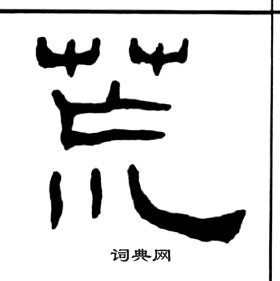 荒
词典网